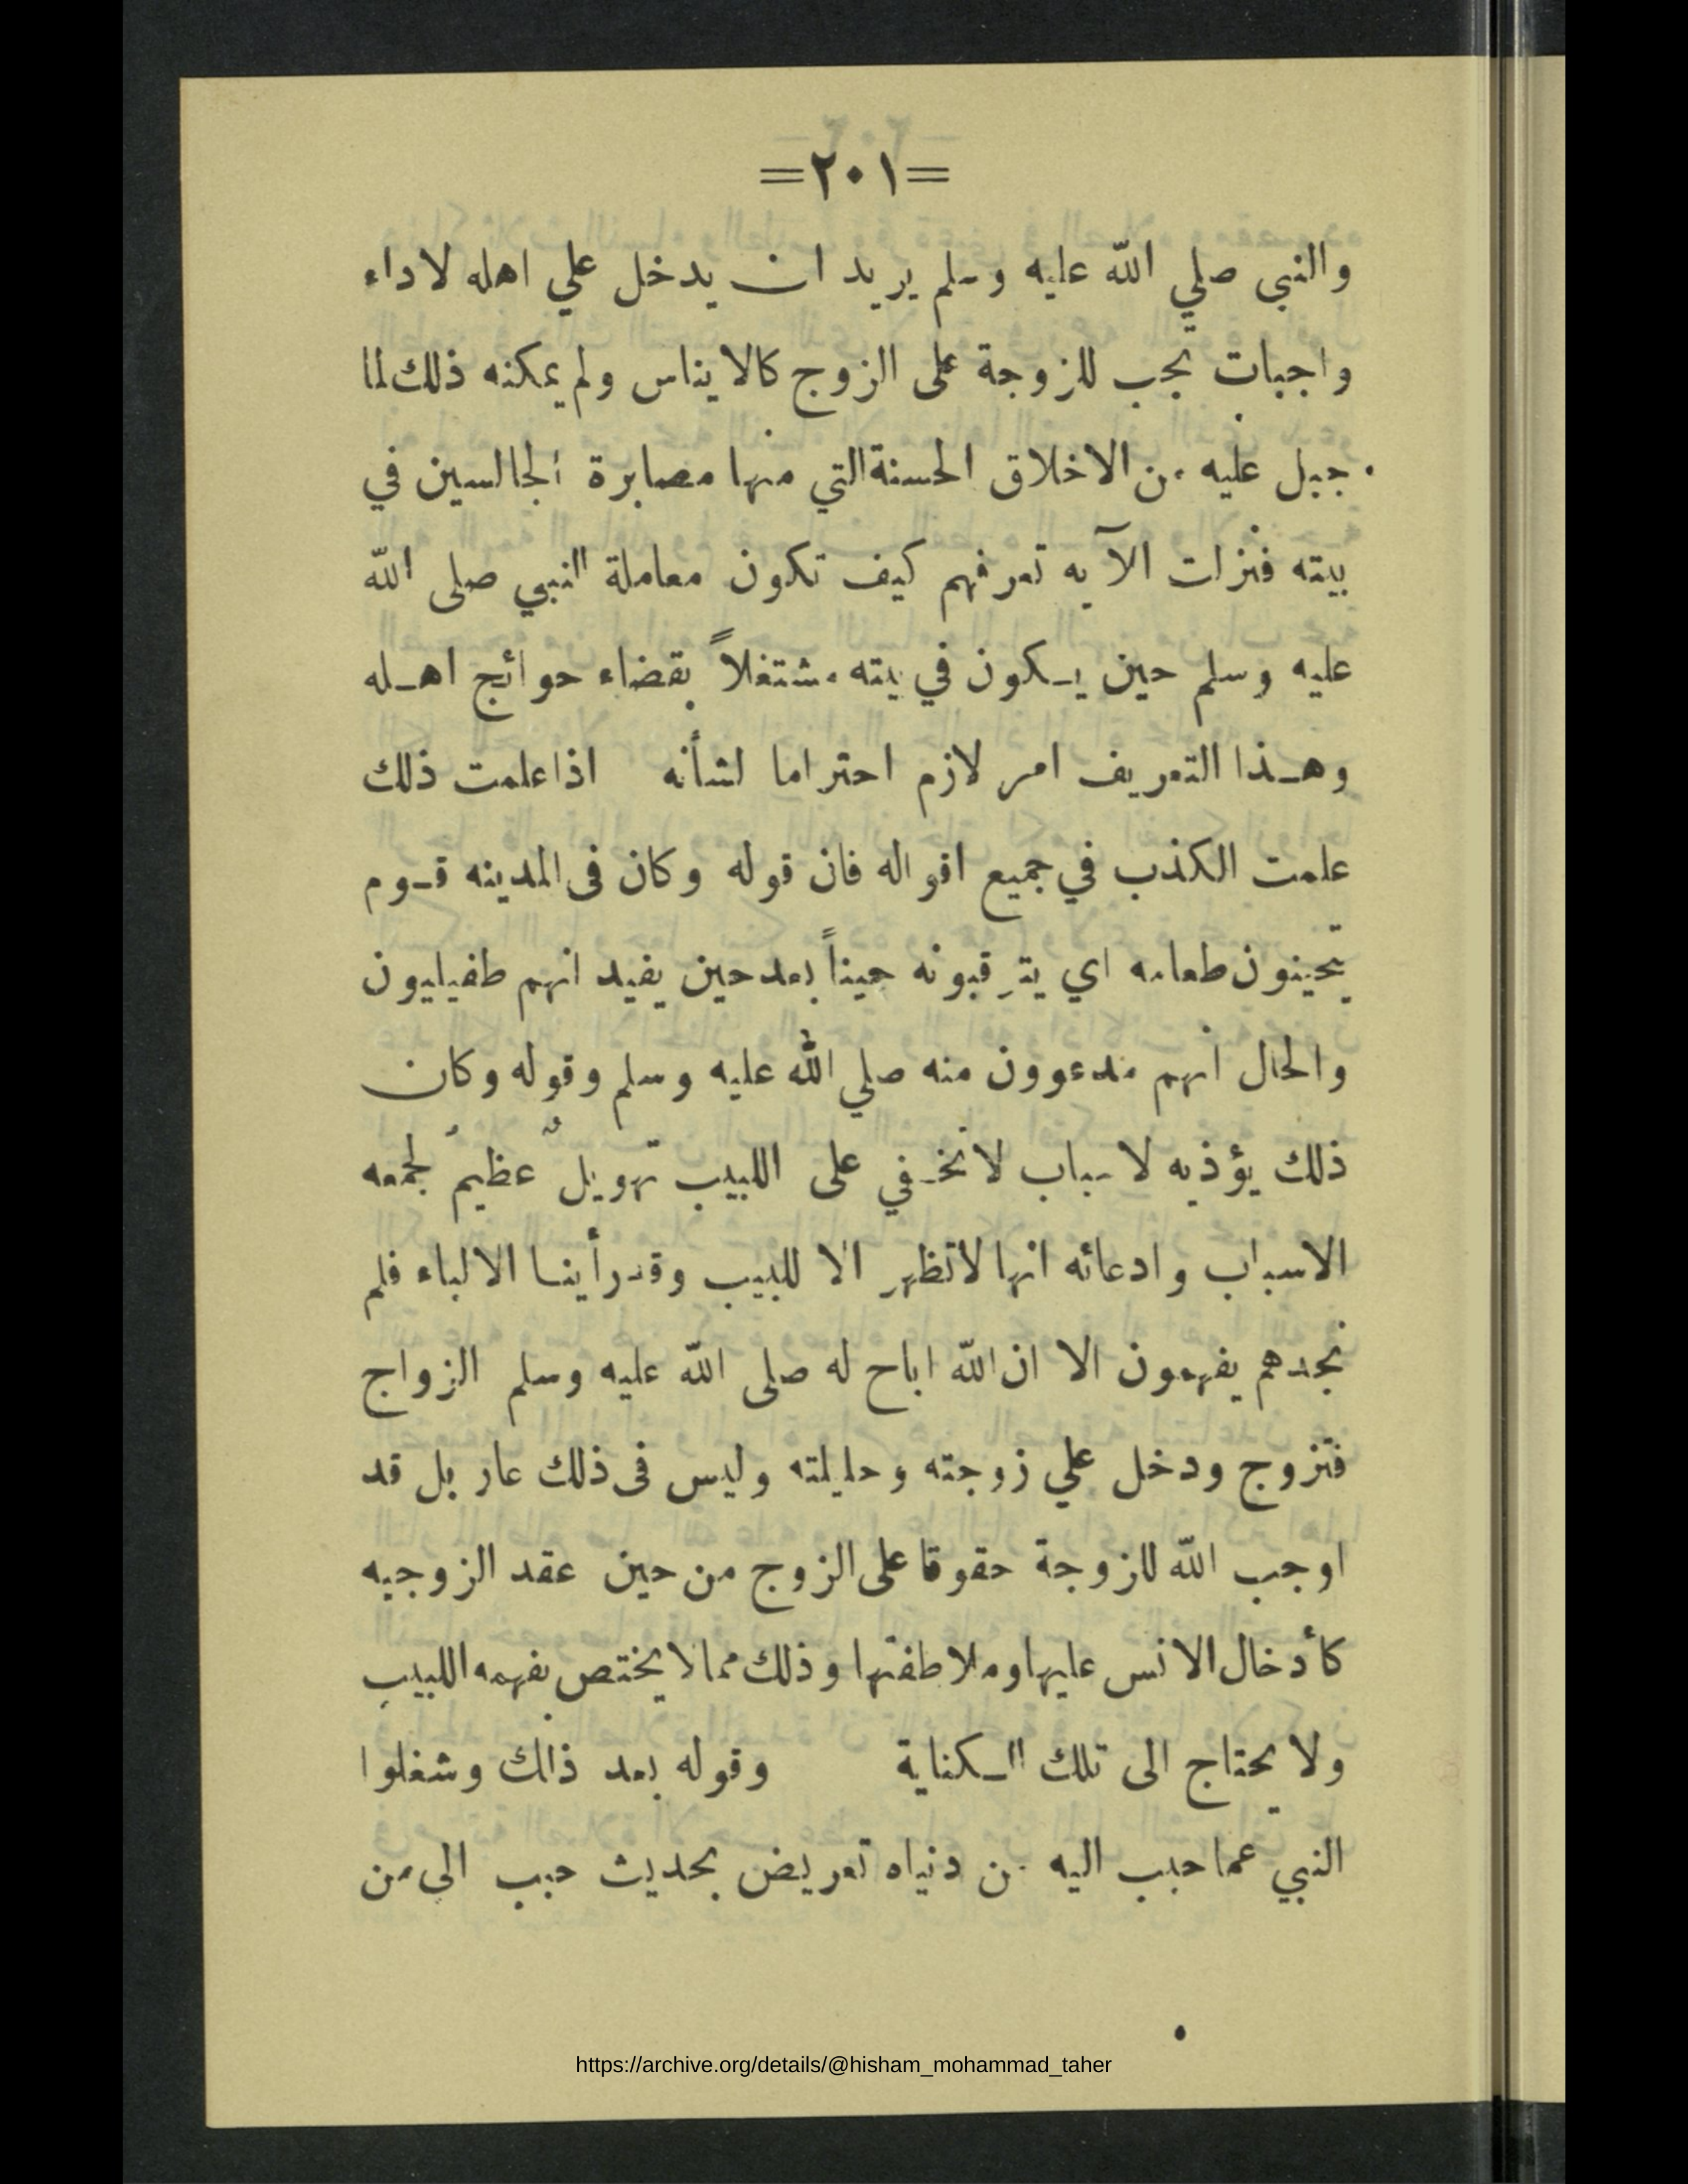 =٢٠١=
والنبي صلي الله عليه وسلم يريد ان يدخل علي اهله لاداء
واجبات تجب للزوجة على الزوج كالايناس ولم يمكنه ذلك لما
جبل عليه من الاخلاق الحسنة التي منها مصابرة الجالسين في
بيته فنزلت الآيه تعرفهم كيف تكون معاملة النبي صلى الله
عليه وسلم حين يكون في بيته مشتغلاً بقضاء حوائج اهله
وهذا التعريف امر لازم احتراما لشأنه اذا علمت ذلك
علمت الكذب في جميع اقواله فان قوله وكان فى المدينه قوم
يتحينون طعامه اي يترقبونه حيناً بعد حين يفيد انهم طفيليون
والحال انهم مدعوون منه صلي الله عليه وسلم وقوله وكان
ذلك يؤذيه لاسباب لاتخفي على اللبيب تهويل عظيم لجمعه
الاسباب وادعائه انها لاتظهر الا للبيب وقد رأينا الالباء فلم
نجدهم يفهمون الا ان الله اباح له صلى الله عليه وسلم الزواج
فتزوج ودخل علي زوجته وحليلته وليس فى ذلك عار بل قد
اوجب الله للزوجة حقوقا على الزوج من حين عقد الزوجيه
كأدخال الانس عليها وملاطفتها وذلك مما لا يختص بفهمه اللبيب
ولا يحتاج الى تلك الكناية وقوله بعد ذالك وشغلوا
النبي عما حبب اليه من دنياه تعريض بحديث حبب الى من
https://archive.org/details/@hisham_mohammad_taher